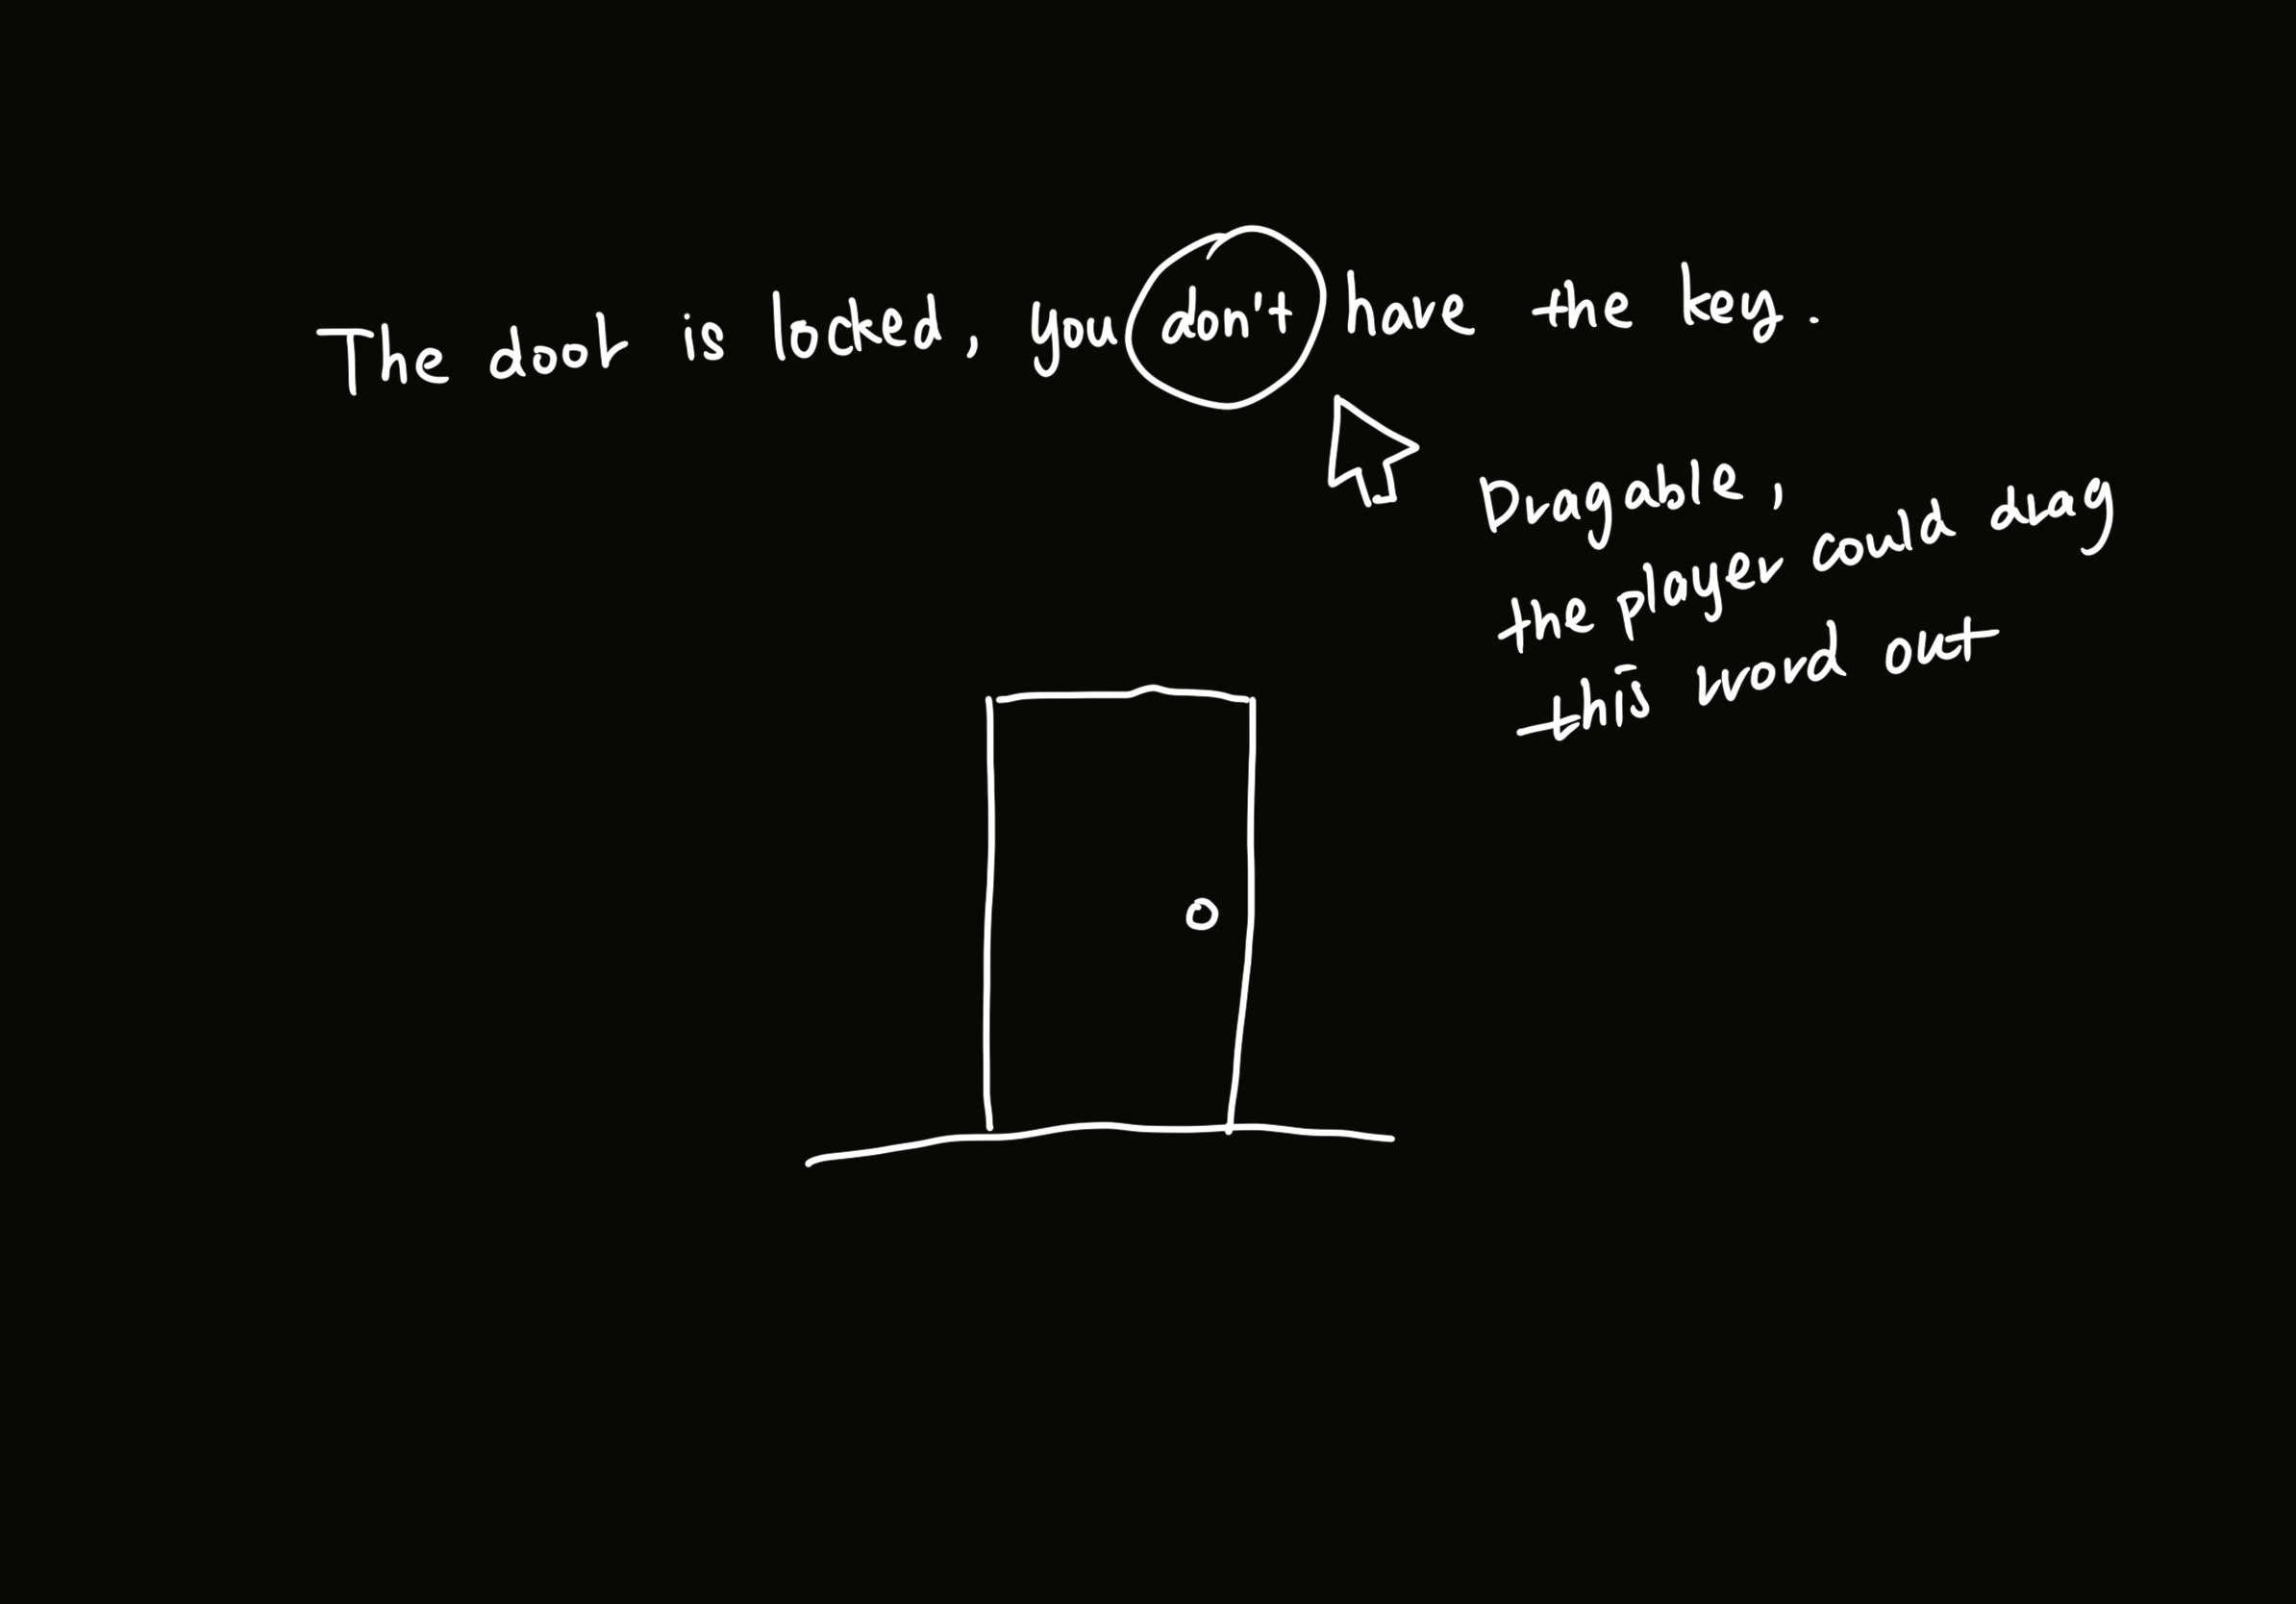 The door is locked, you don't have the key.
Dragable,
the player could drag
this word out